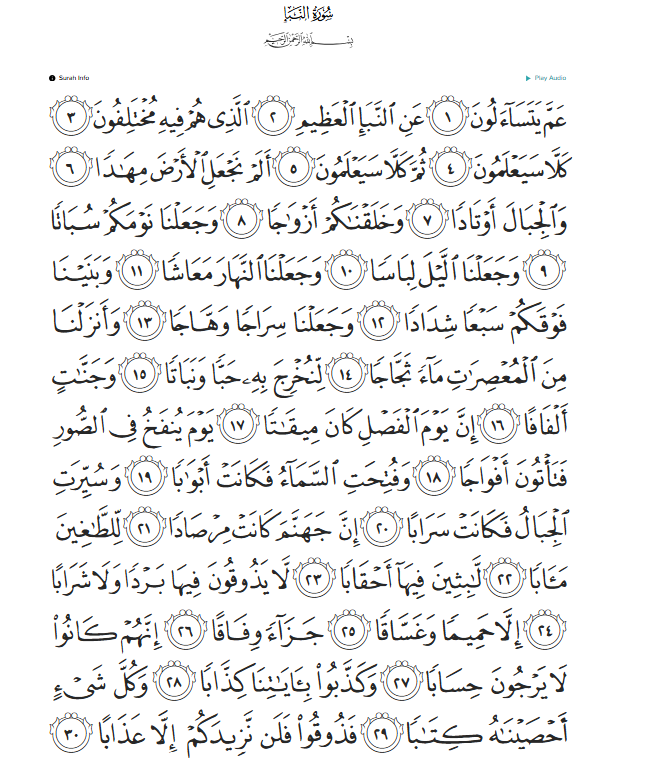 سُورَةُ النَّبَإِ
بِسْمِ اللَّهِ الرَّحْمَٰنِ الرَّحِيمِ
Surah Info
Play Audio
عَمَّ يَتَسَآءَلُونَ ١ عَنِ ٱلنَّبَإِ ٱلْعَظِيمِ ٢ ٱلَّذِى هُمْ فِيهِ مُخْتَلِفُونَ ٣
كَلَّا سَيَعْلَمُونَ ٤ ثُمَّ كَلَّا سَيَعْلَمُونَ ٥ أَلَمْ نَجْعَلِ ٱلْأَرْضَ مِهَـٰدًا ٦
وَٱلْجِبَالَ أَوْتَادًا ٧ وَخَلَقْنَـٰكُمْ أَزْوَٰجًا ٨ وَجَعَلْنَا نَوْمَكُمْ سُبَاتًا
٩ وَجَعَلْنَا ٱلَّيْلَ لِبَاسًا ١٠ وَجَعَلْنَا ٱلنَّهَارَ مَعَاشًا ١١ وَبَنَيْنَا
فَوْقَكُمْ سَبْعًا شِدَادًا ١٢ وَجَعَلْنَا سِرَاجًا وَهَّاجًا ١٣ وَأَنزَلْنَا
مِنَ ٱلْمُعْصِرَٰتِ مَآءً ثَجَّاجًا ١٤ لِّنُخْرِجَ بِهِۦ حَبًّا وَنَبَاتًا ١٥ وَجَنَّـٰتٍ
أَلْفَافًا ١٦ إِنَّ يَوْمَ ٱلْفَصْلِ كَانَ مِيقَـٰتًا ١٧ يَوْمَ يُنفَخُ فِى ٱلصُّورِ
فَتَأْتُونَ أَفْوَاجًا ١٨ وَفُتِحَتِ ٱلسَّمَآءُ فَكَانَتْ أَبْوَٰبًا ١٩ وَسُيِّرَتِ
ٱلْجِبَالُ فَكَانَتْ سَرَابًا ٢٠ إِنَّ جَهَنَّمَ كَانَتْ مِرْصَادًا ٢١ لِّلطَّـٰغِينَ
مَـَٔابًا ٢٢ لَّـٰبِثِينَ فِيهَآ أَحْقَابًا ٢٣ لَّا يَذُوقُونَ فِيهَا بَرْدًا وَلَا شَرَابًا
٢٤ إِلَّا حَمِيمًا وَغَسَّاقًا ٢٥ جَزَآءً وِفَاقًا ٢٦ إِنَّهُمْ كَانُوا۟
لَا يَرْجُونَ حِسَابًا ٢٧ وَكَذَّبُوا۟ بِـَٔايَـٰتِنَا كِذَّابًا ٢٨ وَكُلَّ شَىْءٍ
أَحْصَيْنَـٰهُ كِتَـٰبًا ٢٩ فَذُوقُوا۟ فَلَن نَّزِيدَكُمْ إِلَّا عَذَابًا ٣٠